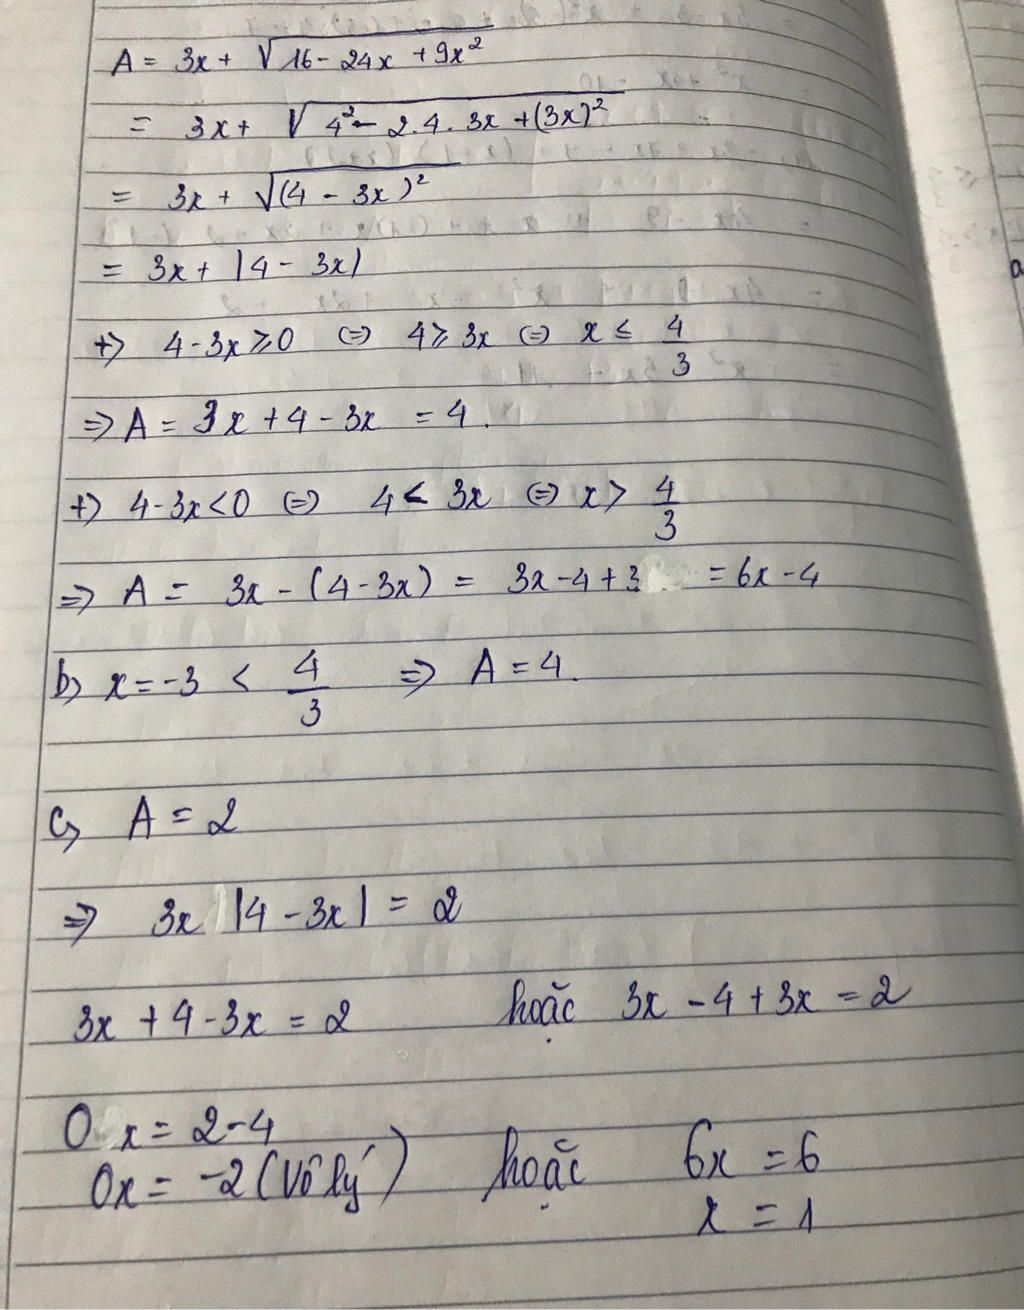 A = 3x + √16 - 24x + 9x²
= 3x + √4² - 2.4.3x + (3x)²
= 3x + √(4 - 3x)²
= 3x + |4 - 3x|
+) 4 - 3x ≥ 0 <=> 4 ≥ 3x <=> x ≤ 4/3
=> A = 3x + 4 - 3x = 4.
+) 4 - 3x < 0 <=> 4 < 3x <=> x > 4/3
=> A = 3x - (4 - 3x) = 3x - 4 + 3 = 6x - 4
b) x = -3 < 4/3 => A = 4.
c) A = 2
=> 3x |4 - 3x| = 2
3x + 4 - 3x = 2 hoặc 3x - 4 + 3x = 2
0 x = 2 - 4
0x = -2 (Vô lý) hoặc 6x = 6
x = 1
a